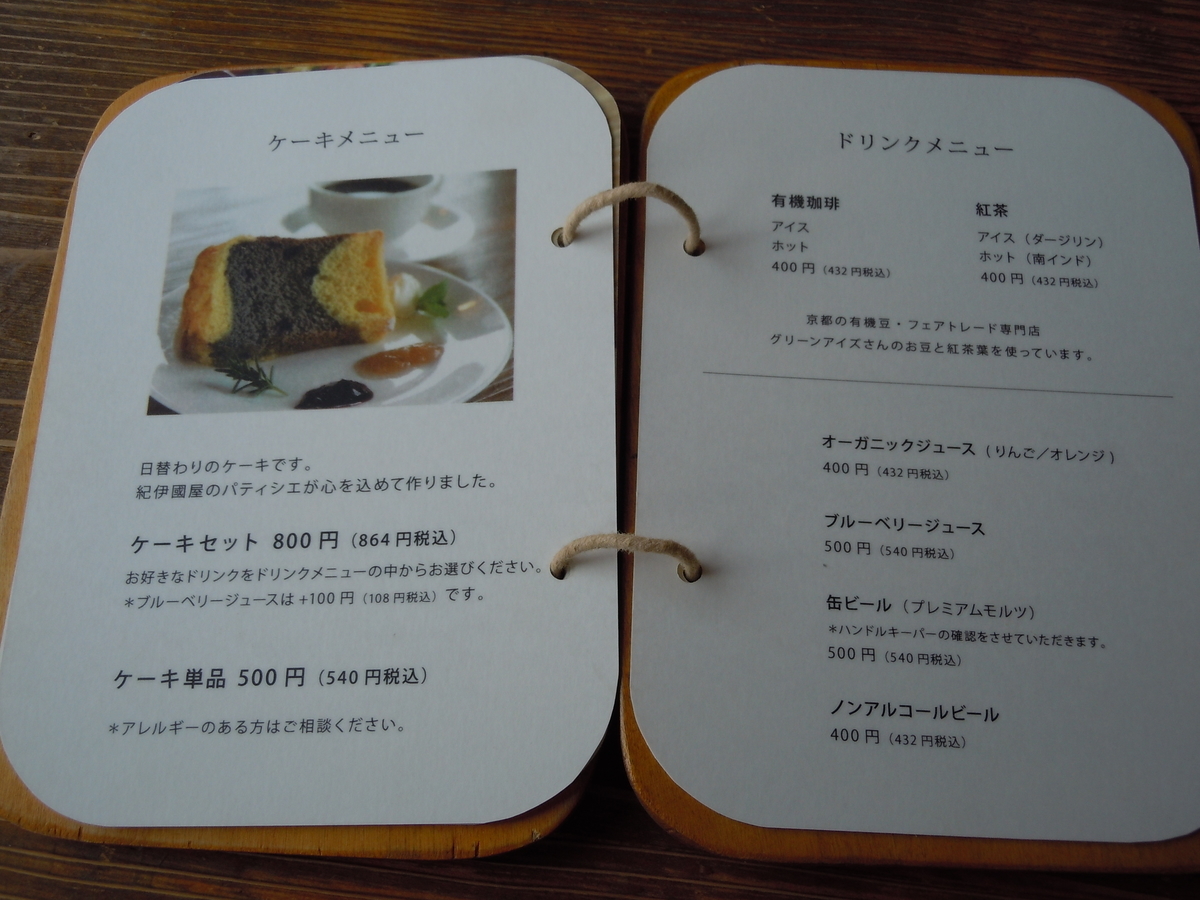 ケーキメニュー
日替わりのケーキです。
紀伊國屋のパティシエが心を込めて作りました。
ケーキセット 800円（864円税込）
お好きなドリンクをドリンクメニューの中からお選びください。
＊ブルーベリージュースは +100円（108円税込）です。
ケーキ単品 500円（540円税込）
＊アレルギーのある方はご相談ください。
ドリンクメニュー
有機珈琲
アイス
ホット
400円（432円税込）
紅茶
アイス（ダージリン）
ホット（南インド）
400円（432円税込）
京都の有機豆・フェアトレード専門店
グリーンアイズさんのお豆と紅茶葉を使っています。
オーガニックジュース（りんご／オレンジ）
400円（432円税込）
ブルーベリージュース
500円（540円税込）
缶ビール（プレミアムモルツ）
＊ハンドルキーパーの確認をさせていただきます。
500円（540円税込）
ノンアルコールビール
400円（432円税込）